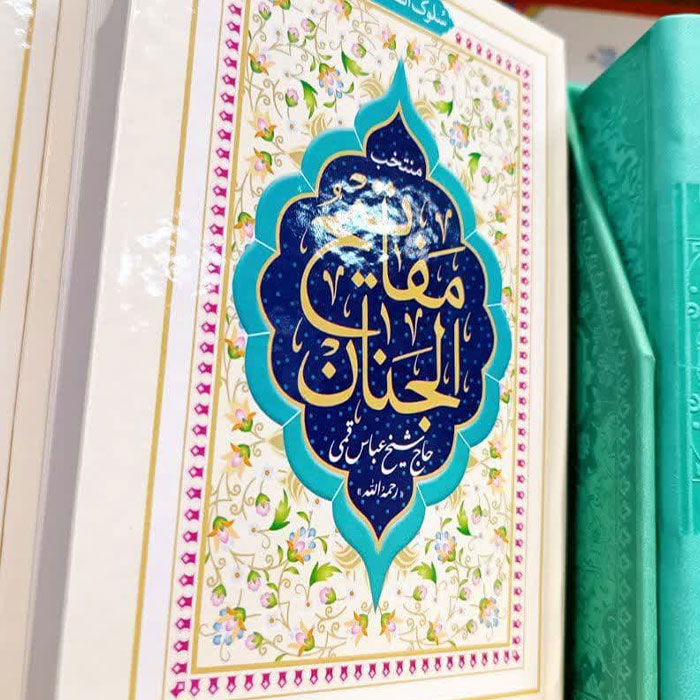 سلوک
منتخب
مفاتیح
الجنان
حاج شیخ عباس قمی
«رحمه الله»